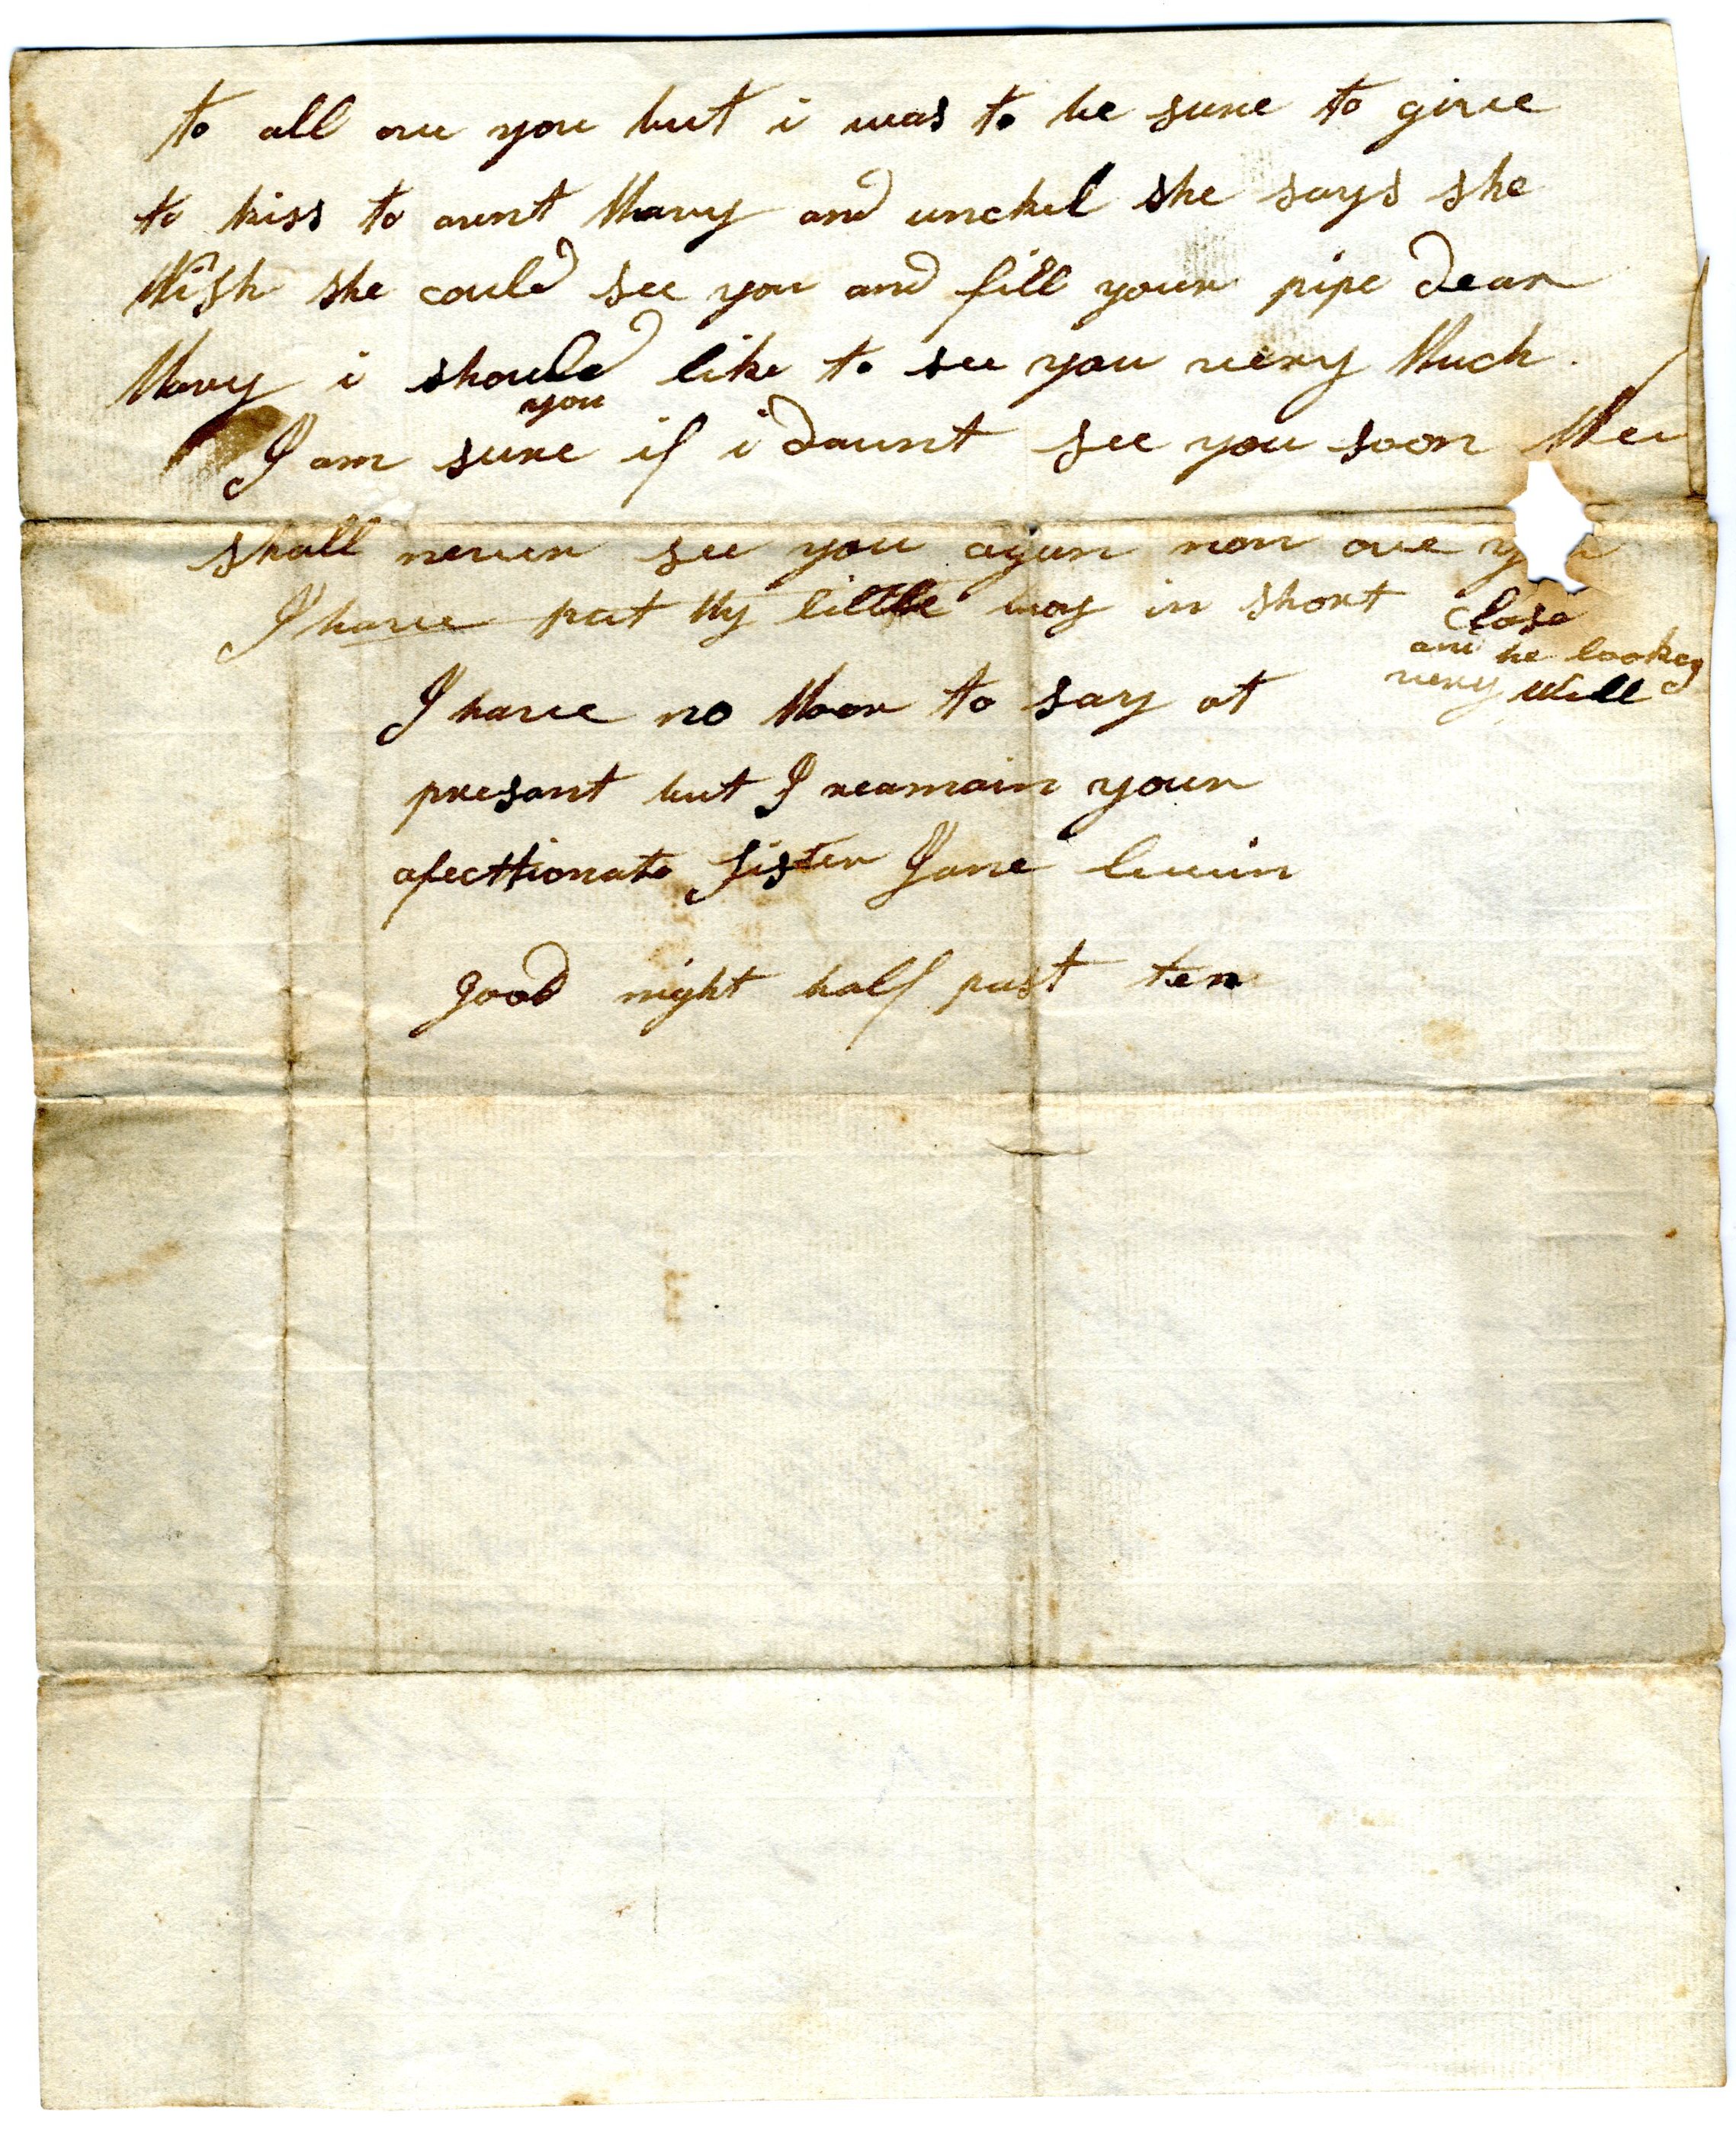 to all ove you but i was to be sure to give
to kiss to aunt Mary and unckel she says she
Wish she could see you and fill your pipe dear
Mary i should like to see you very Much.
you
I am sure if i daunt see you soon
shall never see you agan non ove
I have put My little boy in short Close
and he lookes
very Well
I have no Moor to say at
presant but I reamain your
afecttionate Sister Jane
good night half past ten